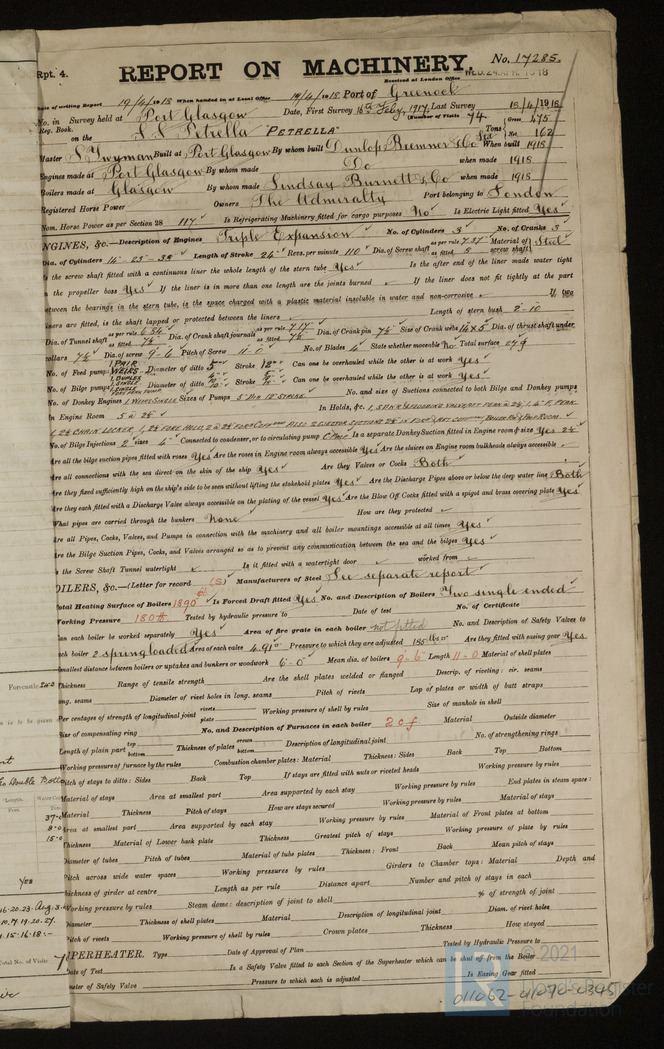 Rpt. 4.
REPORT ON MACHINERY.
No. 17285.
Received at London Office WED. 24 APR 1918
Date of writing Report 19/4/1918 When handed in at Local Office 19/4/1918 Port of Greenock
No. in Survey held at Port Glasgow Date, First Survey 16th Feby, 1917 Last Survey 18/4/1918
Reg. Book. (Number of Visits 74
on the S.S. Petrella "PETRELLA" Tons Gross 475 Net 162
Master S. Twyman Built at Port Glasgow By whom built Dunlop Bremner & Co Ltd When built 1918
Engines made at Port Glasgow By whom made Do when made 1918
Boilers made at Glasgow By whom made Lindsay Burnett & Co when made 1918
Registered Horse Power Owners The Admiralty Port belonging to London
Nom. Horse Power as per Section 28 117 Is Refrigerating Machinery fitted for cargo purposes No Is Electric Light fitted Yes
ENGINES, &c.—Description of Engines Triple Expansion No. of Cylinders 3 No. of Cranks 3
Dia. of Cylinders Length of Stroke 24" Revs. per minute 110 Dia. of Screw shaft as per rule 7.37" as fitted 8 Material of screw shaft Steel
Is the screw shaft fitted with a continuous liner the whole length of the stern tube Yes Is the after end of the liner made water tight
in the propeller boss Yes If the liner is in more than one length are the joints burned If the liner does not fit tightly at the part
between the bearings in the stern tube, is the space charged with a plastic material insoluble in water and non-corrosive If two
liners are fitted, is the shaft lapped or protected between the liners Length of stern bush 2'-10
Dia. of Tunnel shaft as per rule 6.54 as fitted 7½ Dia. of Crank shaft journals as per rule 7.17 as fitted 7½ Dia. of Crank pin 7½ Size of Crank webs 14×5 Dia. of thrust shaft under
collars 7½ Dia. of screw 9'-6 Pitch of Screw 11'-0 No. of Blades 4 State whether moveable No Total surface 27
No. of Feed pumps 1 PAIR WEIRS Diameter of ditto 5" Stroke 12" Can one be overhauled while the other is at work Yes
No. of Bilge pumps Diameter of ditto Stroke Can one be overhauled while the other is at work Yes
No. of Donkey Engines Sizes of Pumps No. and size of Suctions connected to both Bilge and Donkey pumps
In Engine Room 5 @ 2½" In Holds, &c.
No. of Bilge Injections 2 sizes 4" Connected to condenser, or to circulating pump C Pump Is a separate Donkey Suction fitted in Engine room & size Yes 2½
Are all the bilge suction pipes fitted with roses Yes Are the roses in Engine room always accessible Yes Are the sluices on Engine room bulkheads always accessible
Are all connections with the sea direct on the skin of the ship Yes Are they Valves or Cocks Both
Are they fixed sufficiently high on the ship's side to be seen without lifting the stokehold plates Yes Are the Discharge Pipes above or below the deep water line Both
Are they each fitted with a Discharge Valve always accessible on the plating of the vessel Yes Are the Blow Off Cocks fitted with a spigot and brass covering plate Yes
What pipes are carried through the bunkers None How are they protected
Are all Pipes, Cocks, Valves, and Pumps in connection with the machinery and all boiler mountings accessible at all times Yes
Are the Bilge Suction Pipes, Cocks, and Valves arranged so as to prevent any communication between the sea and the bilges Yes
Is the Screw Shaft Tunnel watertight Is it fitted with a watertight door worked from
BOILERS, &c.—(Letter for record (S) Manufacturers of Steel See separate report
Total Heating Surface of Boilers 1890 Is Forced Draft fitted Yes No. and Description of Boilers Two single ended
Working Pressure 180 lb Tested by hydraulic pressure to Date of test No. of Certificate
Can each boiler be worked separately Yes Area of fire grate in each boiler not fitted No. and Description of Safety Valves to
each boiler 2 spring loaded Area of each valve 4.91 Pressure to which they are adjusted 185 lbs Are they fitted with easing gear Yes
Smallest distance between boilers or uptakes and bunkers or woodwork 6'-0" Mean dia. of boilers 9'-6" Length 11'-0 Material of shell plates
Thickness Range of tensile strength Are the shell plates welded or flanged Descrip. of riveting: cir. seams
long. seams Diameter of rivet holes in long. seams Pitch of rivets Lap of plates or width of butt straps
Per centages of strength of longitudinal joint rivets plate Working pressure of shell by rules Size of manhole in shell
Size of compensating ring No. and Description of Furnaces in each boiler 2 c f Material Outside diameter
Length of plain part top bottom Thickness of plates crown bottom Description of longitudinal joint No. of strengthening rings
Working pressure of furnace by the rules Combustion chamber plates: Material Thickness: Sides Back Top Bottom
Pitch of stays to ditto: Sides Back Top If stays are fitted with nuts or riveted heads Working pressure by rules
Material of stays Area at smallest part Area supported by each stay Working pressure by rules End plates in steam space:
Material Thickness Pitch of stays How are stays secured Working pressure by rules Material of stays
Area at smallest part Area supported by each stay Working pressure by rules Material of Front plates at bottom
Thickness Material of Lower back plate Thickness Greatest pitch of stays Working pressure of plate by rules
Diameter of tubes Pitch of tubes Material of tube plates Thickness: Front Back Mean pitch of stays
Pitch across wide water spaces Working pressures by rules Girders to Chamber tops: Material Depth and
thickness of girder at centre Length as per rule Distance apart Number and pitch of stays in each
Working pressure by rules Steam dome: description of joint to shell % of strength of joint
Diameter Thickness of shell plates Material Description of longitudinal joint Diam. of rivet holes
Pitch of rivets Working pressure of shell by rules Crown plates Thickness How stayed
SUPERHEATER. Type Date of Approval of Plan Tested by Hydraulic Pressure to
Date of Test Is a Safety Valve fitted to each Section of the Superheater which can be shut off from the Boiler
Diameter of Safety Valve Pressure to which each is adjusted Is Easing Gear fitted
© 2021
Lloyd's Register
Foundation
011062-011070-0345